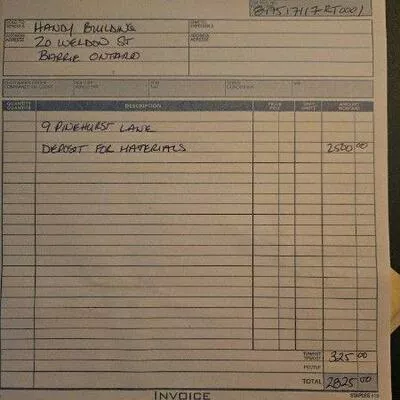 81951 7117 RT0001
HANDY BUILDING
20 WELDON ST
BARRIE ONTARIO
QUANTITY DESCRIPTION AMOUNT
9 PINEHURST LANE
DEPOSIT FOR MATERIALS 2500 00
325 00
TOTAL 2825 00
INVOICE
STAPLES